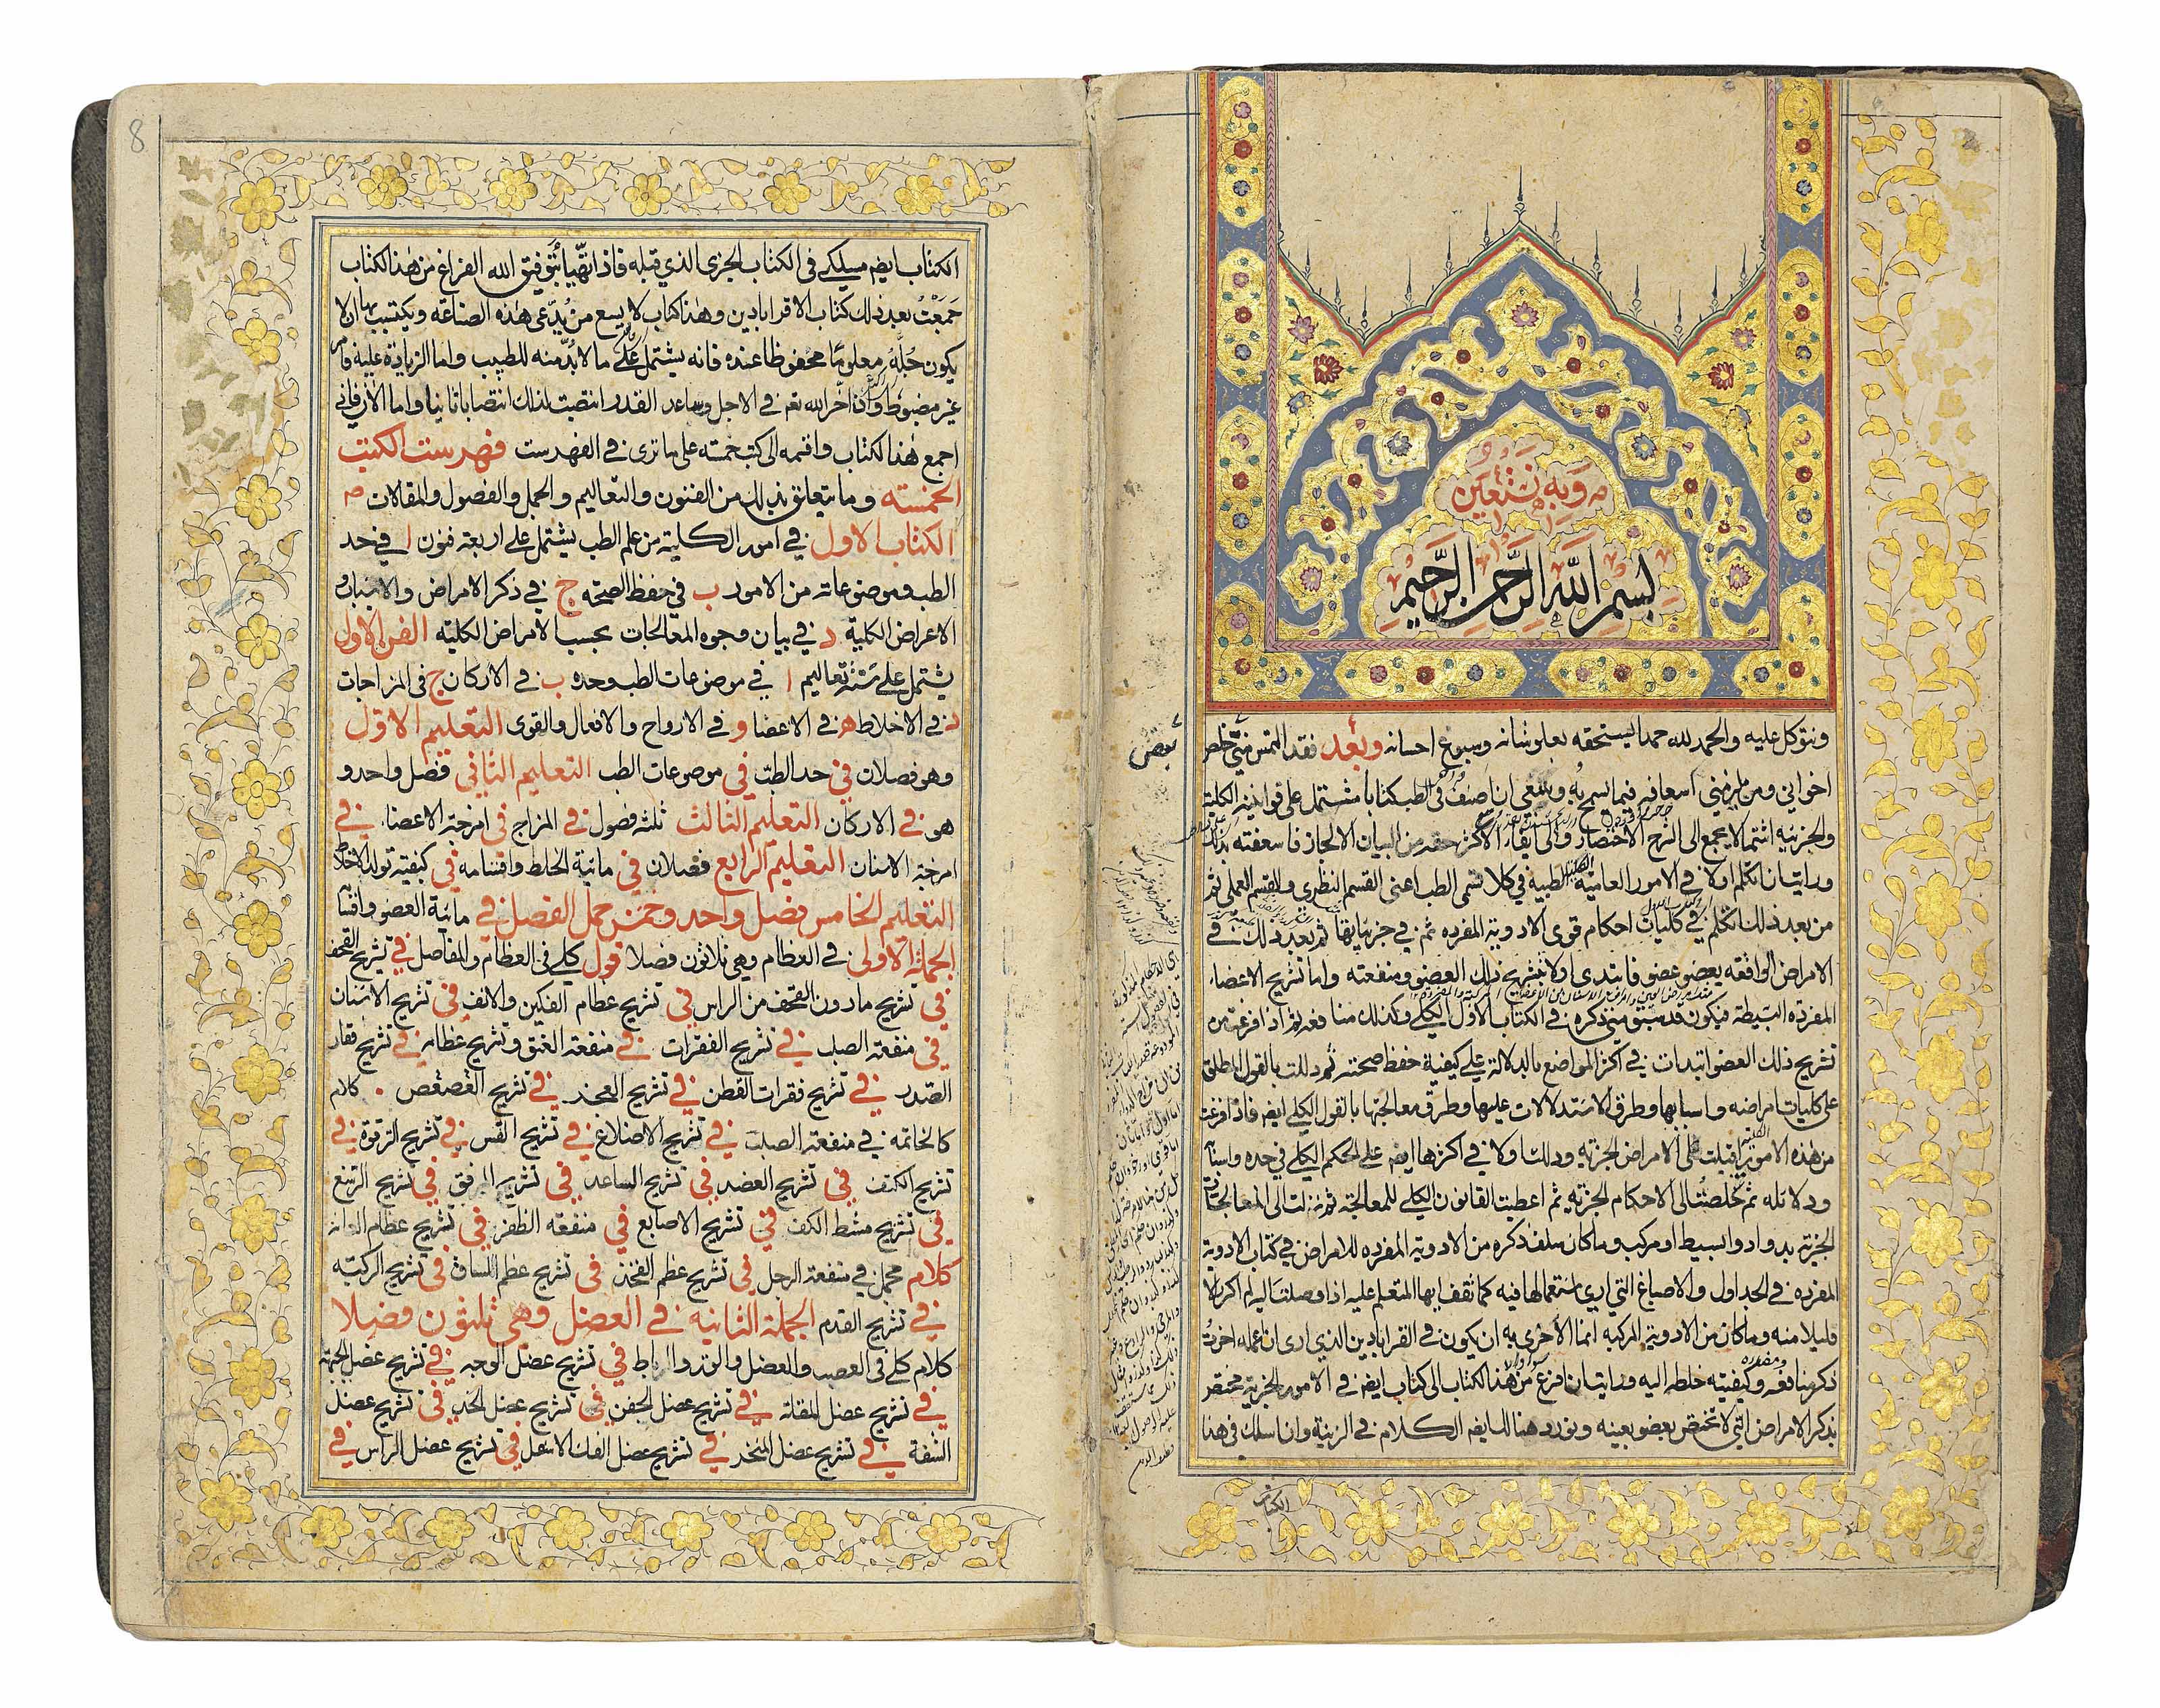 وَبِهِ نَسْتَعِين
بِسْمِ اللَّهِ الرَّحْمٰنِ الرَّحِيمِ
ونتوكل عليه والحمد لله حمدا يستحقه بعلو شانه وسبوغ احسانه وبعد فقد التمس مني خلص
بعض
اخواني ومن يلزمني اسعافه فيما يسمح به وسعى ان اصنف في الطب كتابا مشتمل على قوانينه الكلية
والجزئية اشتمالا يجمع الى الشرح الاختصار والى ايفاء الاكثر حقه من البيان الايجاز فاسعفته بذلك
ورايت ان اتكلم اولا في الامور العامية الكلية الطبية في كلا قسمي الطب اعنى القسم النظرى والقسم العملى ثم
من بعد ذلك اتكلم في كليات احكام قوى الادوية المفرده ثم في جزئياتها ثم بعد ذلك في
الامراض الواقعه بعضو عضو فابتدى اولا بتشريح ذلك العضو ومنفعته واما تشريح الاعضاء
المفرده البسيطة فيكون قد سبق مني ذكره في الكتاب الاول الكلي وكذلك منافعه ثم اذا فرغت من
تشريح ذلك العضو ابتدات في اكثر المواضع بالدلالة على كيفية حفظ صحته ثم دللت بالقول المطلق
على كليات امراضه واسبابها وطرق الاستدلالات عليها وطرق معالجتها بالقول الكلي ايضا فاذا فرغت
من هذه الامور الكلية اقبلت على الامراض الجزئية ودللت اولا في اكثرها ايضا على الحكم الكلي في حده واسبابه
ودلائله ثم تخلصت الى الاحكام الجزئية ثم اعطيت القانون الكلي للمعالجة ثم نزلت الى المعالجات
الجزئية بدواء دوا بسيط او مركب وما كان سلف ذكره من الادوية المفرده للامراض في كتاب الادوية
المفرده في الجداول والاصباغ التي ارى استعمالها فيه كما تقف ايها المتعلم عليه اذا وصلت اليه لم اكرر الا
قليلا منه وما كان من الادوية المركبه انما الاحرى به ان يكون في القراباذين الذي ارى ان اعمله اخرت
ذكر منافعه وكيفيته خلطه اليه ورايت ان افرغ من هذا الكتاب الى كتاب ايضا في الامور الجزئية مختص
بذكر الامراض التي لا تختص بعضو بعينه ونورد هنالك ايضا الكلام في الزينة وان اسلك في هذا
الكتاب
8
الكتاب ايضا مسلكى فى الكتاب الجزى الذي قبله فاذا تهيأ بتوفيق الله الفراغ من هذا الكتاب
جمعت بعد ذلك كتاب الاقراباذين وهذا كتاب لا يسع من يدّعى هذه الصناعة ويكتسب بها ان لا
يكون جُلّه معلوما محفوظا عنده فانه يشتمل على ما لا بُدّ منه للطبيب واما الزيادة عليه فامر
غير مضبوط وان اخّر الله تع في الاجل وساعد القدر انتصبت لذلك انتصابا ثانيا واما الان فانى
اجمع هذا الكتاب واقسمه الى كتب خمسه على ما ترى في الفهرست فهرست الكتب
الخمسته وما يتعلق بذلك من الفنون والتعاليم والجمل والفصول والمقالات
الكتاب الاول في امور الكلية من علم الطب يشتمل على اربعة فنون ا في حد
الطب وموضوعاته من الامور ب في حفظ الصحه ج في ذكر الامراض والاسباب و
الاعراض الكلية د في بيان وجوه المعالجات بحسب الامراض الكلية الفن الاول
يشتمل على ستة تعاليم ا في موضوعات الطب وحده ب في الاركان ج فى المزاجات
د في الاخلاط ه في الاعضا و في الارواح والافعال والقوى التعليم الاوّل
وهو فصلان في حد الطب في موضوعات الطب التعليم الثاني فصل واحد و
هو في الاركان التعليم الثالث ثلثة فصول في المزاج في امزجة الاعضا في
امزجة الاسنان التعليم الرابع فصلان في مائية الخلط واقسامه في كيفية تولد الاخلاط
التعليم الخامس فصل واحد وخمس جمل الفصل في مائية العضو واقسامه
الجملة الاولى في العظام وهي ثلاثون فصلا قول كلي في العظام والمفاصل في تشريح القحف
في تشريح مادون القحف من الراس في تشريح عظام الفكين والانف في تشريح الاسنان
في منفعة الصلب في تشريح الفقرات في منفعة العنق وتشريح عظامه في تشريح فقار
الصدر في تشريح فقرات القطن في تشريح العجز في تشريح العصعص كلام
كالخاتمه في منفعة الصلب في تشريح الاضلاع في تشريح القس في تشريح الترقوة في
تشريح الكتف في تشريح العضد في تشريح الساعد في تشريح المرفق في تشريح الرسغ
في تشريح مشط الكف في تشريح الاصابع في منفعة الظفر في تشريح عظام العانه
كلام مجمل في منفعة الرجل في تشريح عظم الفخذ في تشريح عظم الساق في تشريح الركبه
في تشريح القدم الجملة الثانيه في العضل وهي ثلثون فصلا
كلام كلي في العصب والعضل والوتر والرباط في تشريح عضل الوجه في تشريح عضل الجبهة
في تشريح عضل المقلة في تشريح عضل الجفن في تشريح عضل الخد في تشريح عضل
الشفة في تشريح عضل المنخر في تشريح عضل الفك الاسفل في تشريح عضل الراس في